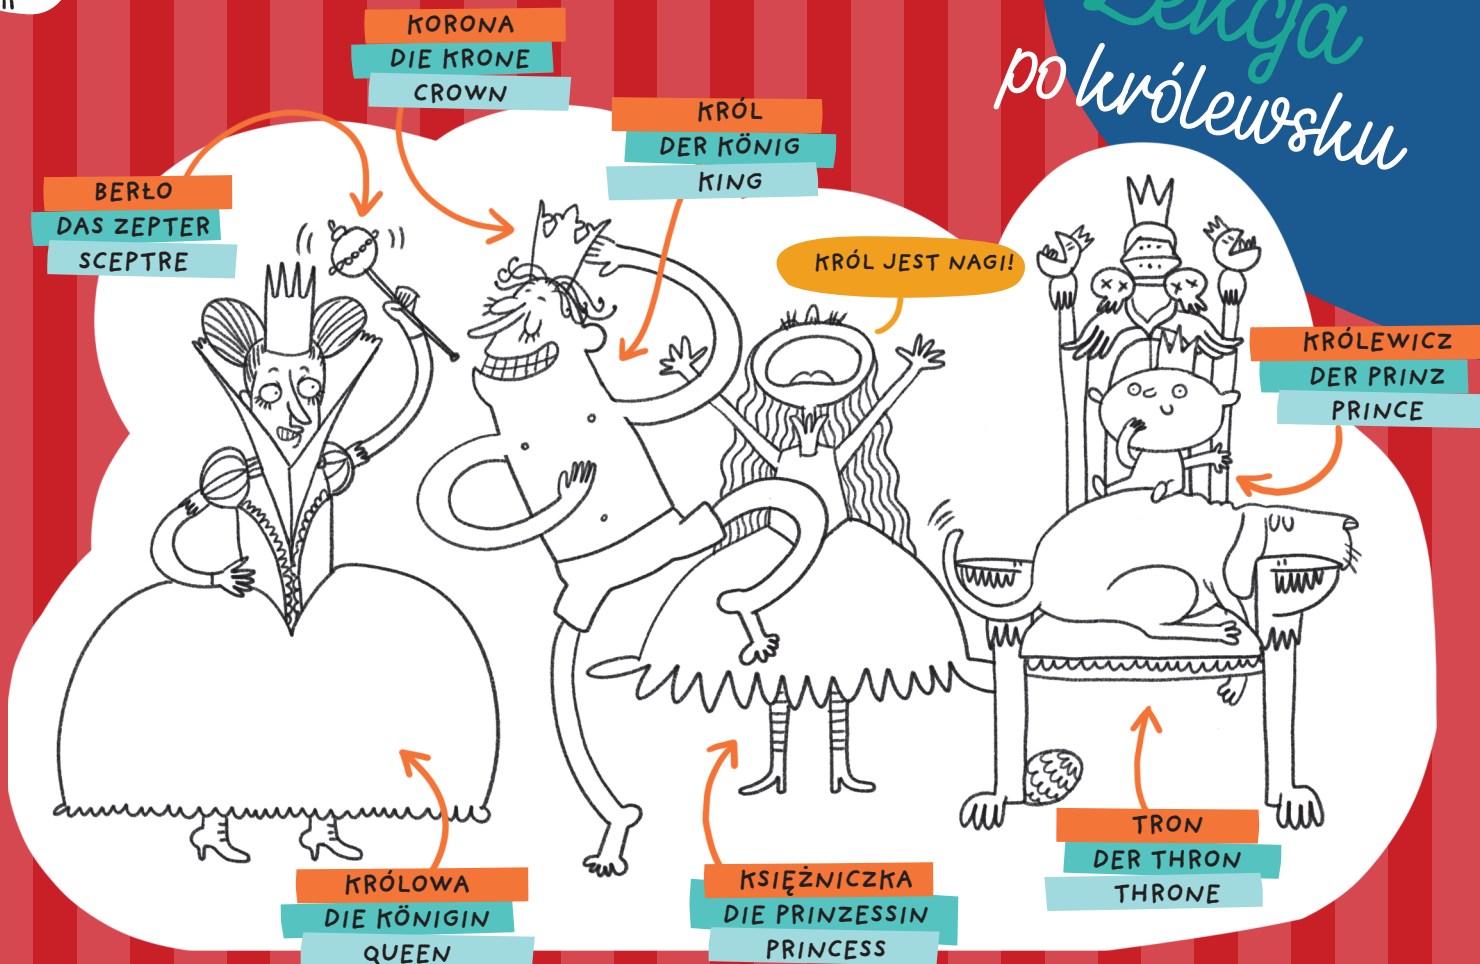 Lekcja
po królewsku
KORONA
DIE KRONE
CROWN
KRÓL
DER KÖNIG
KING
BERŁO
DAS ZEPTER
SCEPTRE
KRÓL JEST NAGI!
KRÓLEWICZ
DER PRINZ
PRINCE
TRON
DER THRON
THRONE
KRÓLOWA
DIE KÖNIGIN
QUEEN
KSIĘŻNICZKA
DIE PRINZESSIN
PRINCESS